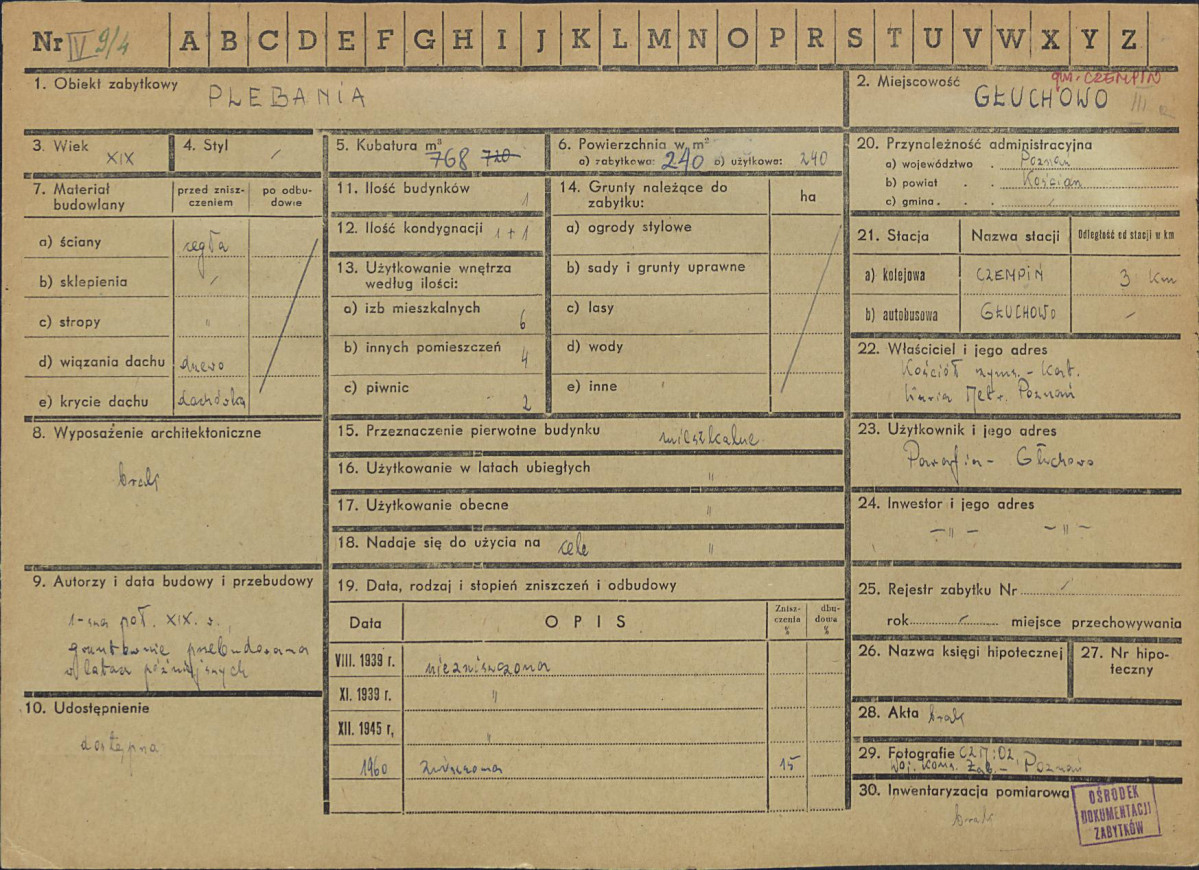 Nr IV 9/4 A B C D E F G H I J K L M N O P R S T U V W X Y Z
1. Obiekt zabytkowy
PLEBANIA
2. Miejscowość
gm. CZEMPIŃ
GŁUCHOWO
III
3. Wiek
XIX
4. Styl /
5. Kubatura m³
768 720
6. Powierzchnia w m²
a) zabytkowa: 240 b) użytkowa: 240
20. Przynależność administracyjna
a) województwo . Poznań
b) powiat . . Kościan
c) gmina . . . /
7. Materiał budowlany
przed zniszczeniem
po odbudowie
a) ściany cegła
b) sklepienia /
c) stropy "
d) wiązania dachu drewo
e) krycie dachu dachówka
11. Ilość budynków 1
12. Ilość kondygnacji 1 + 1
13. Użytkowanie wnętrza
według ilości:
a) izb mieszkalnych 6
b) innych pomieszczeń 4
c) piwnic 2
14. Grunty należące do
zabytku:
ha
a) ogrody stylowe
b) sady i grunty uprawne
c) lasy
d) wody
e) inne
21. Stacja
Nazwa stacji
Odległość od stacji w km
a) kolejowa CZEMPIŃ 3 km
b) autobusowa GŁUCHOWO /
22. Właściciel i jego adres
Kościół rzyms. - Kat.
Kuria Metr. Poznań
8. Wyposażenie architektoniczne
brak
15. Przeznaczenie pierwotne budynku mieszkalne
16. Użytkowanie w latach ubiegłych "
17. Użytkowanie obecne "
18. Nadaje się do użycia na cele "
23. Użytkownik i jego adres
Parafia - Głuchowo
24. Inwestor i jego adres
- " - - " -
9. Autorzy i data budowy i przebudowy
1-sza poł. XIX. w.,
gruntownie przebudowana
w latach późniejszych
19. Data, rodzaj i stopień zniszczeń i odbudowy
Data
OPIS
Zniszczenia %
dbudowa %
VIII. 1939 r. niezniszczona
XI. 1939 r. "
XII. 1945 r, "
1960 zniszczona 15
25. Rejestr zabytku Nr /
rok / miejsce przechowywania
26. Nazwa księgi hipotecznej
27. Nr hipoteczny
10. Udostępnienie
dostępna
28. Akta brak
29. Fotografie OZM i OZ,
Woj. Kons. Zab. - Poznań
30. Inwentaryzacja pomiarowa
brak
OŚRODEK
DOKUMENTACJI
ZABYTKÓW